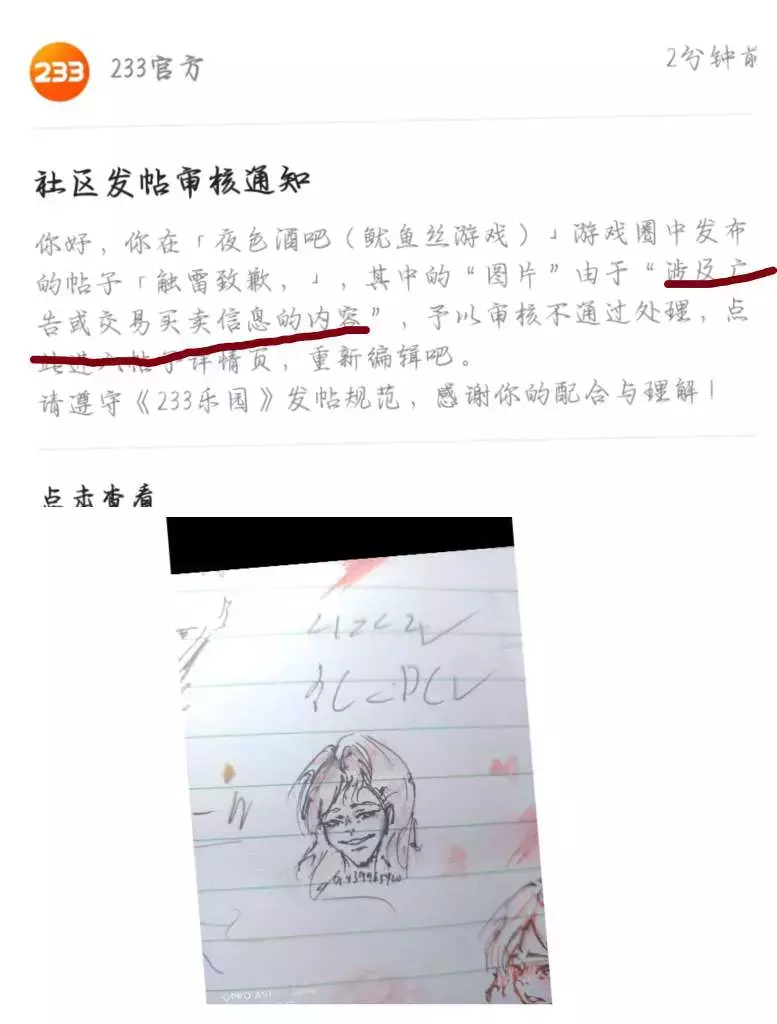 233
233官方
2分钟前
社区发帖审核通知
你好，你在「夜色酒吧（鱿鱼丝游戏）」游戏圈中发布
的帖子「触雷致歉，」，其中的“图片”由于“涉及广
告或交易买卖信息的内容”，予以审核不通过处理，点
此进入帖子详情页，重新编辑吧。
请遵守《233乐园》发帖规范，感谢你的配合与理解！
点击查看
OPPO A51